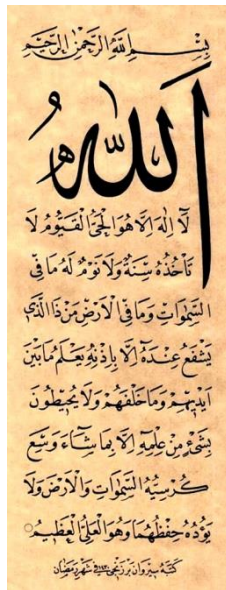 بِسْمِ اللهِ الرَّحْمٰنِ الرَّحِيْمِ
اَللهُ
لَا اِلٰهَ اِلَّا هُوَ الْحَيُّ الْقَيُّومُ لَا
تَأْخُذُهُ سِنَةٌ وَلَا نَوْمٌ لَهُ مَا فِي
السَّمٰوَاتِ وَمَا فِي الْاَرْضِ مَنْ ذَا الَّذِي
يَشْفَعُ عِنْدَهُ اِلَّا بِاِذْنِهِ يَعْلَمُ مَا بَيْنَ
اَيْدِيهِمْ وَمَا خَلْفَهُمْ وَلَا يُحِيطُونَ
بِشَيْءٍ مِنْ عِلْمِهِ اِلَّا بِمَا شَاءَ وَسِعَ
كُرْسِيُّهُ السَّمٰوَاتِ وَالْاَرْضَ وَلَا
يَؤُدُهُ حِفْظُهُمَا وَهُوَ الْعَلِيُّ الْعَظِيمُ
كتبه بيروان برزنجي في شهر رمضان